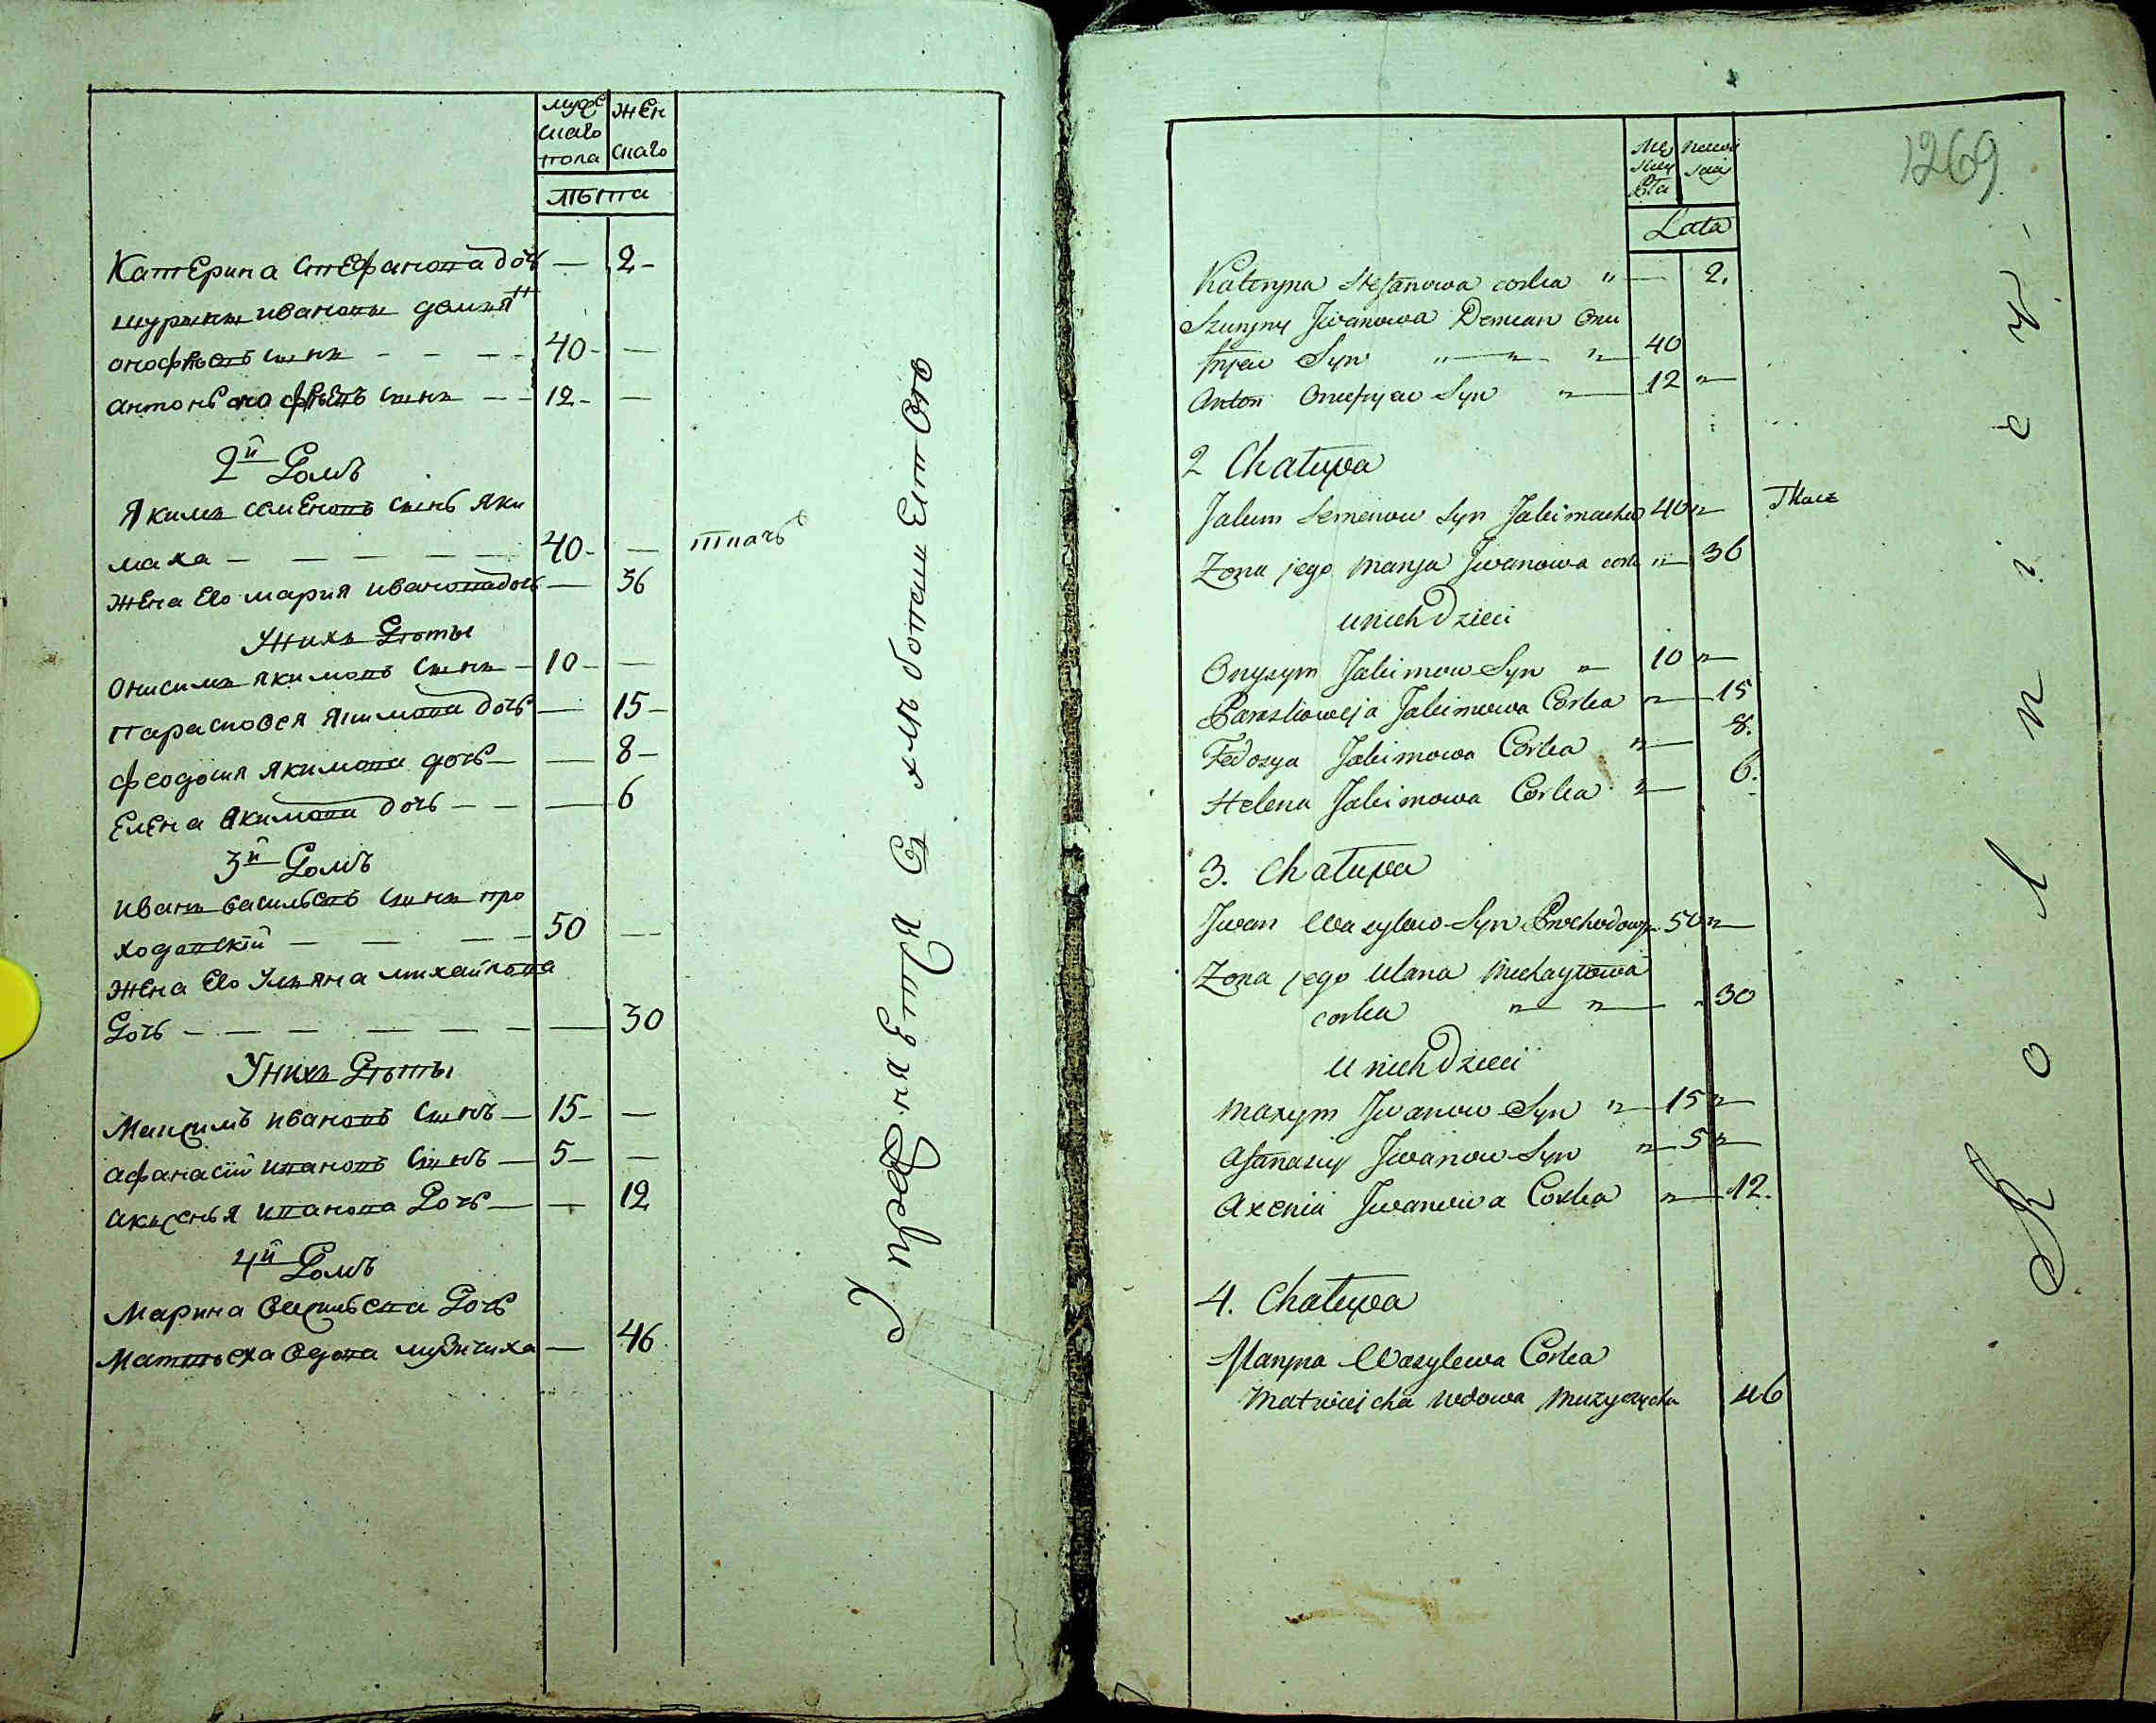 мужескаго пола
женскаго
лѣта
Катерина Стефанова дочь — 2-
Шурины Ивановы Демиянъ
Онофріевъ сынъ - - - 40- —
Антонъ Онофріевъ сынъ - - 12- —
2й Домъ
Якимъ Семеновъ сынъ Яки
маха — — — — — 40- — ткачъ
Жена Его Мария Иванова дочь — 36
У нихъ Дѣты
Онисимъ Якимовъ сынъ - 10- —
Парасковея Якимова дочь — 15-
Феодосия Якимова дочь — — 8-
Елена Якимова дочь - - — 6
3й Домъ
Иванъ Васильевъ сынъ Про
ходовскій — — — - 50 —
Жена Его Ульяна Михайлова
Дочь - — — — — — 30
У нихъ Дѣты
Максимъ Ивановъ Сынъ — 15- —
Афанасій Ивановъ Сынъ — 5- —
Аксенья Иванова Дочь — — 12
4й Домъ
Марина Васильева Дочь
Матвѣеха вдова Музичиха — 46
1269
Lata
Kateryna Stefanowa corka " — 2.
Szuryny Jwanowa Demian Onu
fryew Syn " — " — " 40
Anton Onufryew Syn " — 12 " —
2 Chałupa
Jakim Semenow Syn Jakimacha 40 " — Tkacz
Zona jego Marya Jwanowa cork " — 36
u nich Dzieci
Onysym Jakimow Syn " — 10 " —
Paraskowija Jakimowa Corka " — 15
Fedosya Jakimowa Corka " — 8.
Helena Jakimowa Corka " — 6.
3. Chałupa
Jwan Wasylew Syn Prochodowy 50 " —
Zona jego Ulana Michayłowa
corka " — " — " 30
U nich Dzieci
Maxym Jwanow Syn " — 15 " —
Afanasiy Jwanow Syn " — 5 " —
Axenia Jwanowa Corka " — 12.
4. Chałupa
Maryna Wasylewa Corka
Matwiejcha wdowa Muzyczycha 46